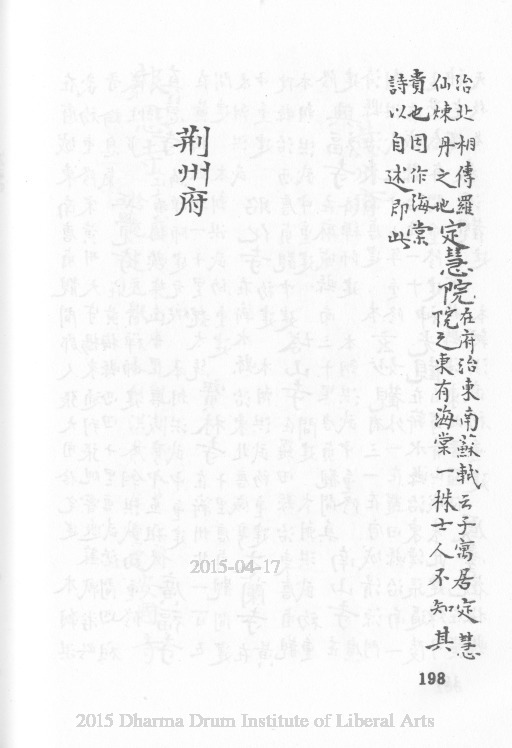 治北相傳羅
仙煉丹之地定慧院在府治東南蘇軾云子寓居定慧
院之東有海棠一株士人不知其
貴也因作海棠
詩以自述即此
荆州府
2015-04-17
198
2015 Dharma Drum Institute of Liberal Arts